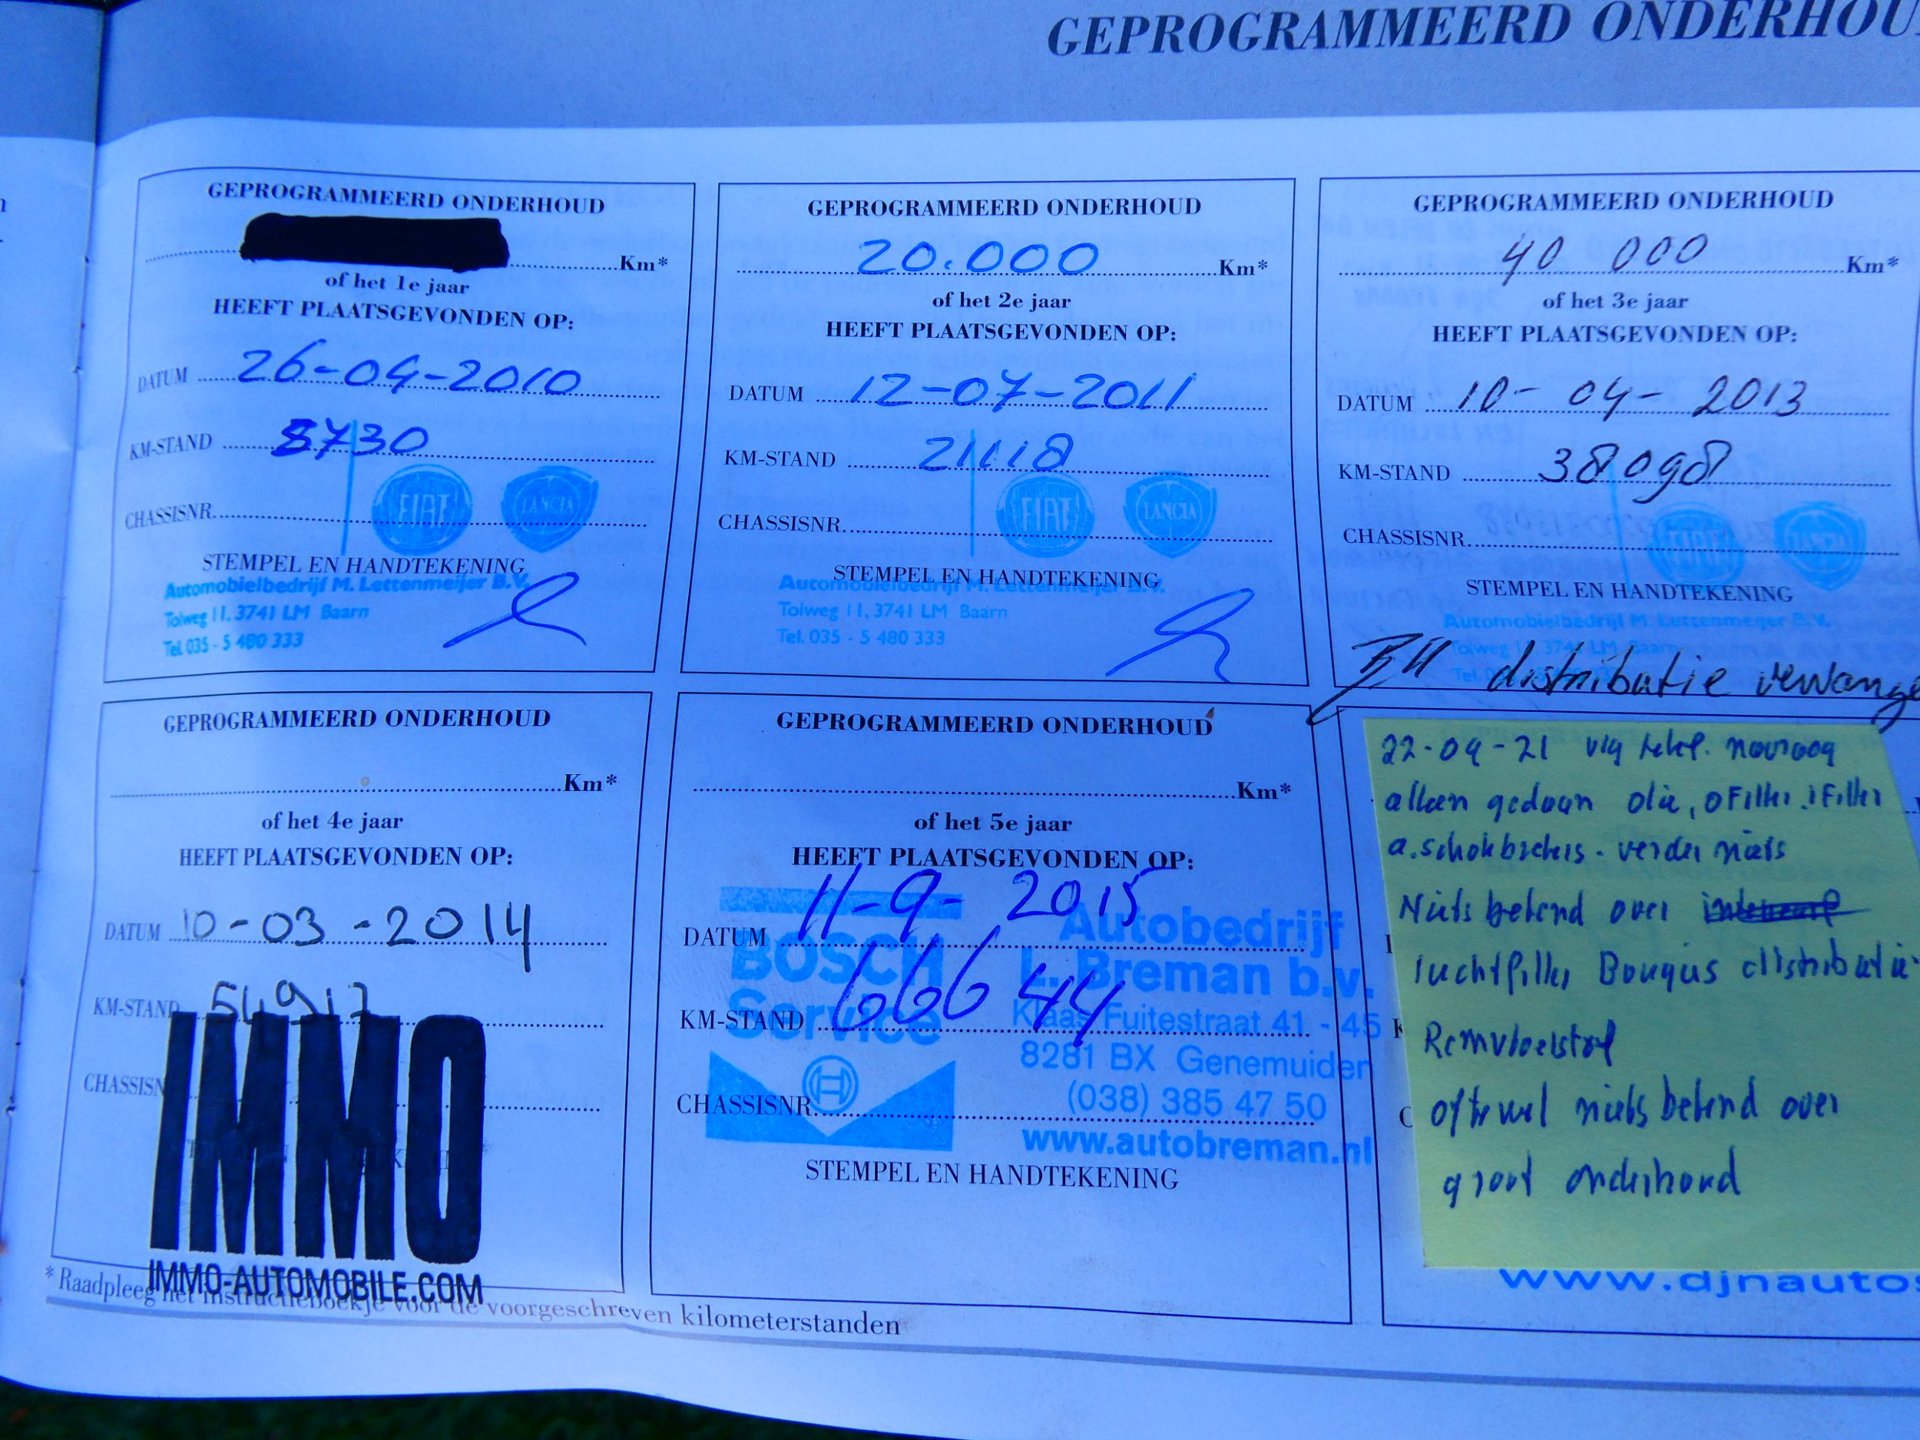 GEPROGRAMMEERD ONDERHOU
GEPROGRAMMEERD ONDERHOUD
Km*
of het 1e jaar
HEEFT PLAATSGEVONDEN OP:
DATUM 26-04-2010
KM-STAND 8730
CHASSISNR.
FIAT LANCIA
STEMPEL EN HANDTEKENING
Automobielbedrijf M. Lettenmeijer B.V.
Tolweg 11, 3741 LM Baarn
Tel. 035 - 5 480 333
GEPROGRAMMEERD ONDERHOUD
20.000 Km*
of het 2e jaar
HEEFT PLAATSGEVONDEN OP:
DATUM 12-07-2011
KM-STAND 21118
CHASSISNR.
FIAT LANCIA
STEMPEL EN HANDTEKENING
Automobielbedrijf M. Lettenmeijer B.V.
Tolweg 11, 3741 LM Baarn
Tel. 035 - 5 480 333
GEPROGRAMMEERD ONDERHOUD
40 000 Km*
of het 3e jaar
HEEFT PLAATSGEVONDEN OP:
DATUM 10-04-2013
KM-STAND 38098
CHASSISNR.
FIAT LANCIA
STEMPEL EN HANDTEKENING
Automobielbedrijf M. Lettenmeijer B.V.
Tolweg 11, 3741 LM Baarn
distributie vervange
GEPROGRAMMEERD ONDERHOUD
Km*
of het 4e jaar
HEEFT PLAATSGEVONDEN OP:
DATUM 10-03-2014
KM-STAND 54917
CHASSISN
IMMO
IMMO-AUTOMOBILE.COM
GEPROGRAMMEERD ONDERHOUD
Km*
of het 5e jaar
HEEFT PLAATSGEVONDEN OP:
DATUM 11-9-2015
KM-STAND 66644
CHASSISNR.
BOSCH
Service
Autobedrijf
L. Breman b.v.
Klaas Fuitestraat 41 - 45
8281 BX Genemuiden
(038) 385 47 50
www.autobreman.nl
STEMPEL EN HANDTEKENING
22-09-21 vlg telef. navraag
alleen gedaan olie, oFilter, iFilter
a.schokbrekers - verder niets
Niets bekend over
luchtfilter Bougies distributie
Remvloeistof
oftewel niets bekend over
groot onderhoud
www.djnautos
* Raadpleeg het instructieboekje voor de voorgeschreven kilometerstanden